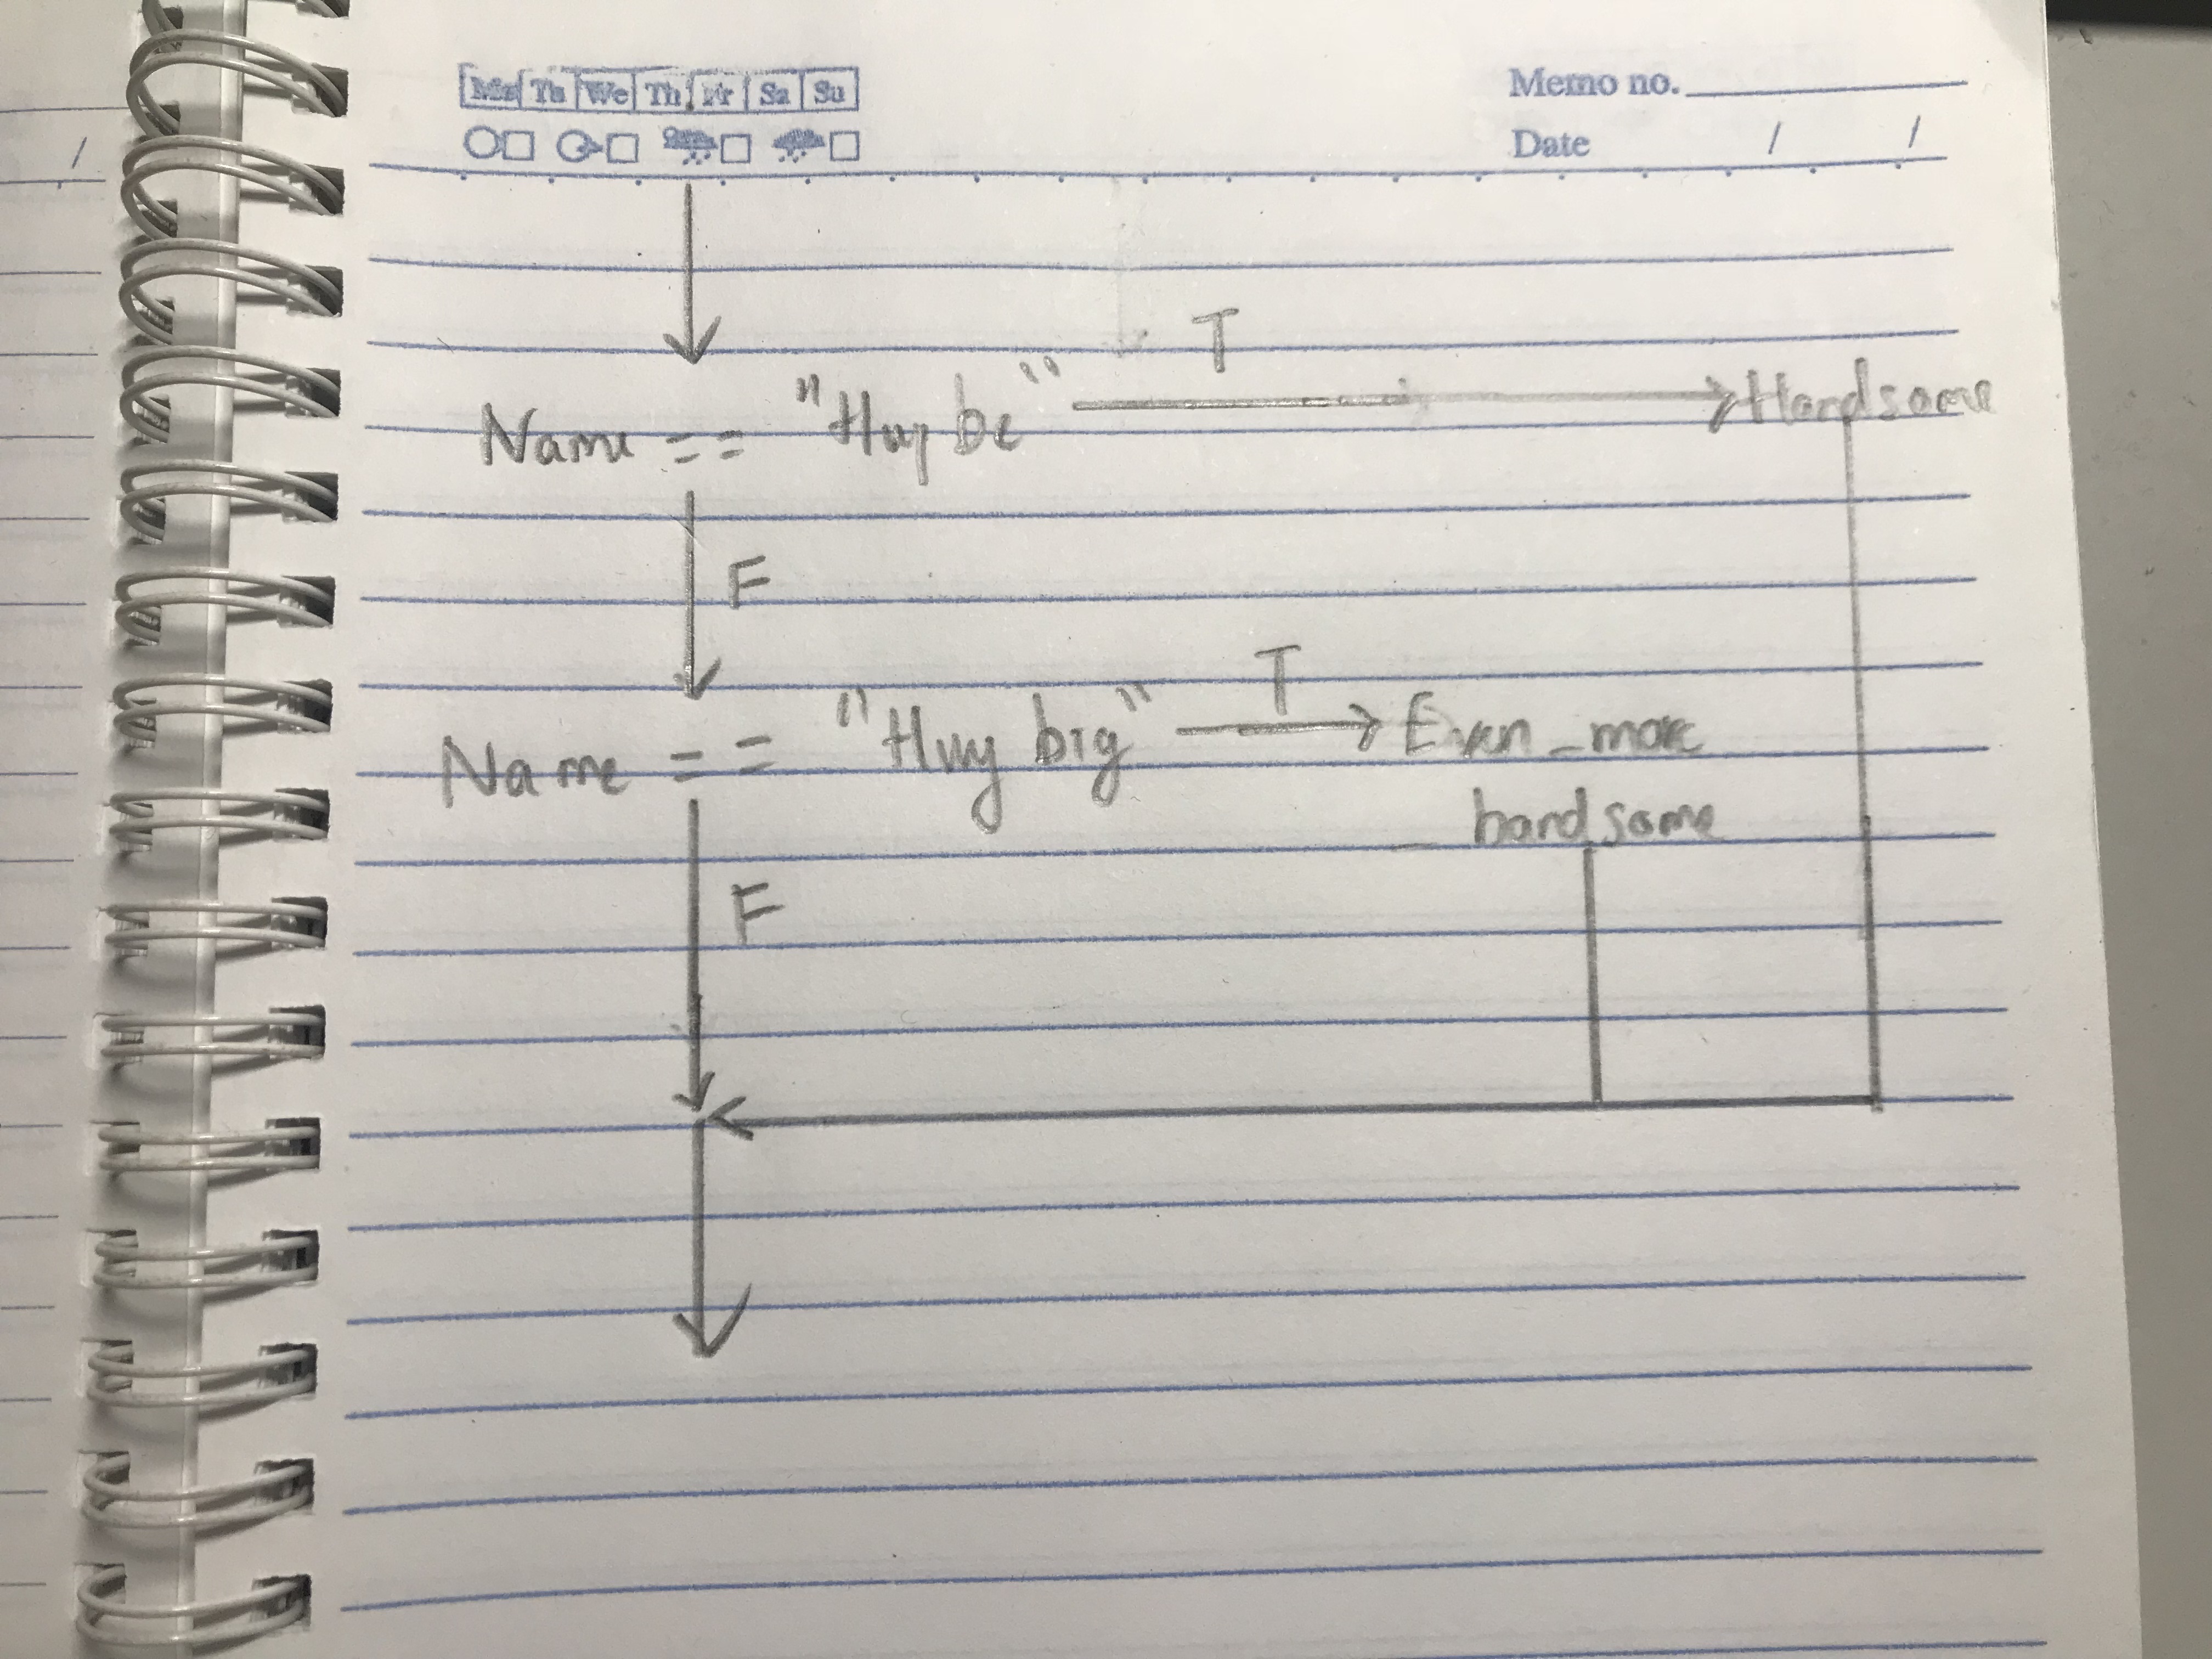 Mo Tu We Th Fr Sa Su
Memo no.
Date / /
T
Name == "Huy be" Handsome
F
T
Name == "Huy big" Even_more
_handsome
F